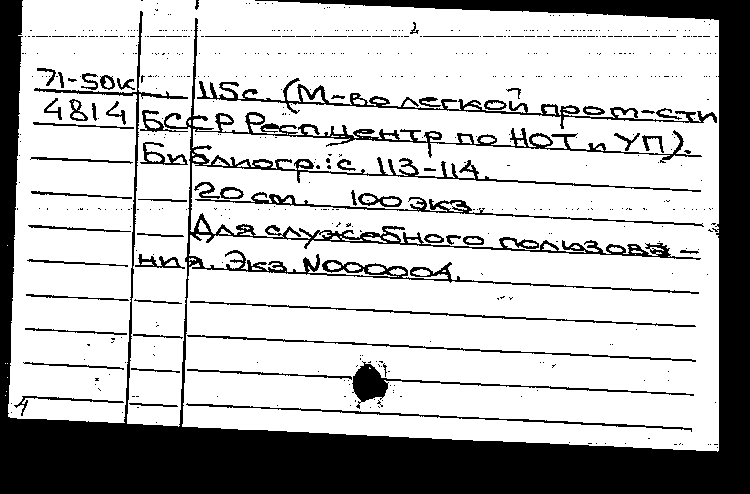 2
71-50к 115с. (М-во легкой пром-сти
4814 БССР. Респ.центр по НОТ и УП).
Библиогр.: с. 113-114.
20 см. 100 экз.
Для служебного пользова-
ния. Экз. N000004.